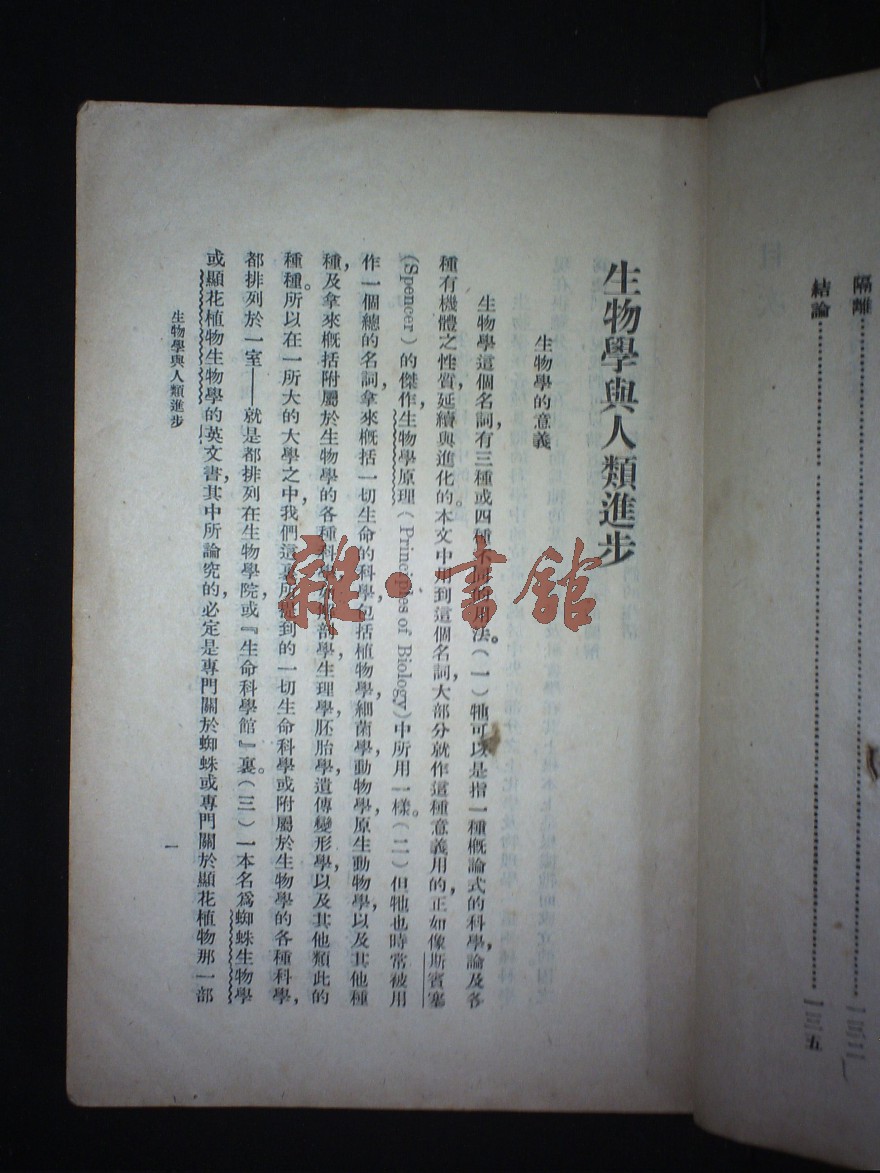 隔離 一三二
結論 一三五
生物學與人類進步
生物學的意義
生物學這個名詞，有三種或四種不同的用法。（一）牠可以是指一種概論式的科學，論及各
種有機體之性質，延續與進化的。本文中用到這個名詞，大部分就作這種意義用的，正如像斯賓塞
（Spencer）的傑作，生物學原理（Principles of Biology）中所用一樣。（二）但牠也時常被用
作一個總的名詞，拿來概括一切生命的科學，包括植物學，細菌學，動物學，原生動物學，以及其他種
種，及拿來概括附屬於生物學的各種科學，解剖學，生理學，胚胎學，遺傳變形學，以及其他類此的
種種。所以在一所大的大學之中，我們這裏所提到的一切生命科學或附屬於生物學的各種科學，
都排列於一室——就是都排列在生物學院，或『生命科學館』裏。（三）一本名爲蜘蛛生物學
或顯花植物生物學的英文書，其中所論究的，必定是專門關於蜘蛛或專門關於顯花植物那一部
生物學與人類進步
一
雜·書館